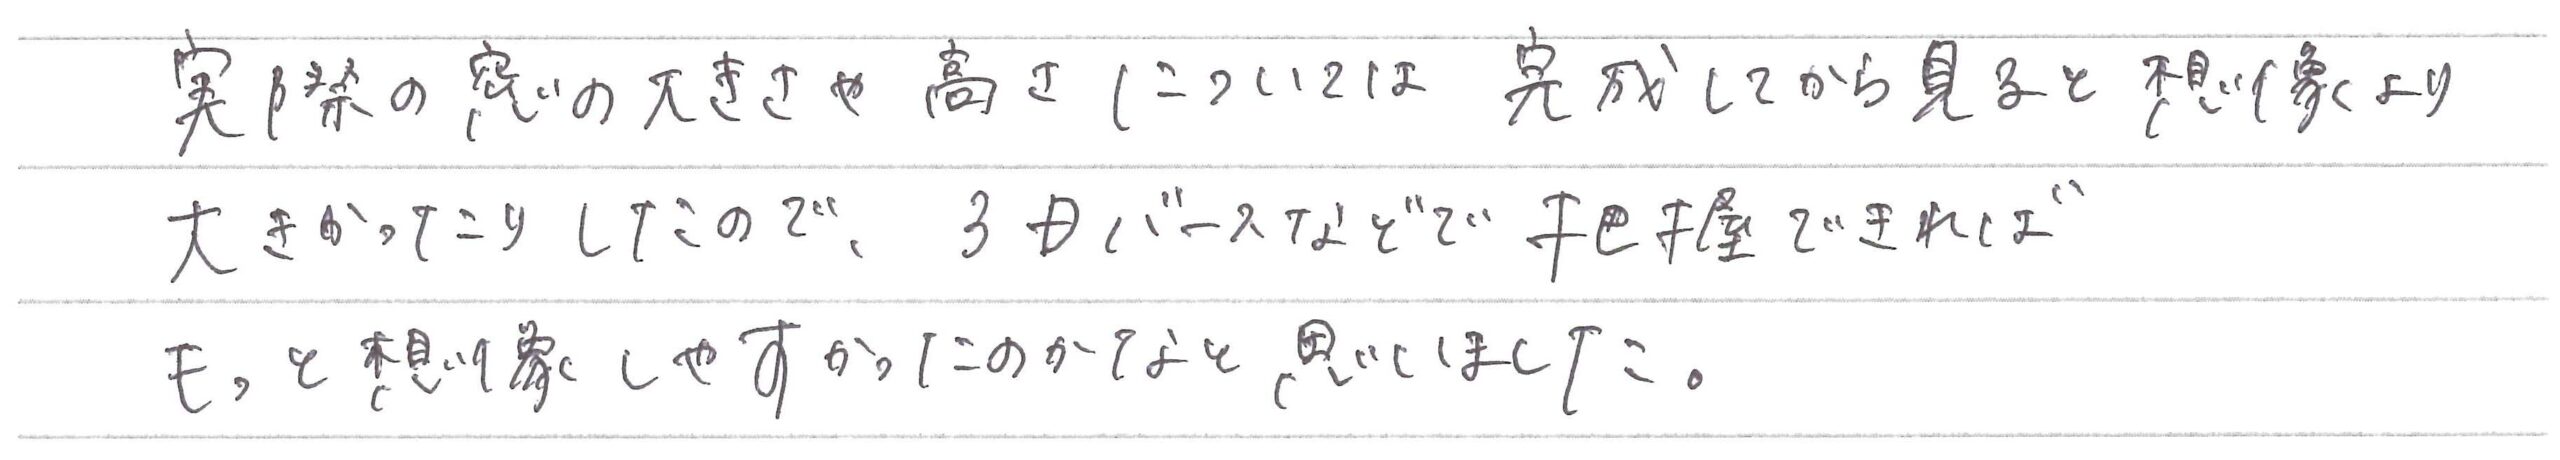 実際の窓の大きさや高さについては完成してから見ると想像より
大きかったりしたので、3Dパースなどで把握できれば
もっと想像しやすかったのかなと思いました。